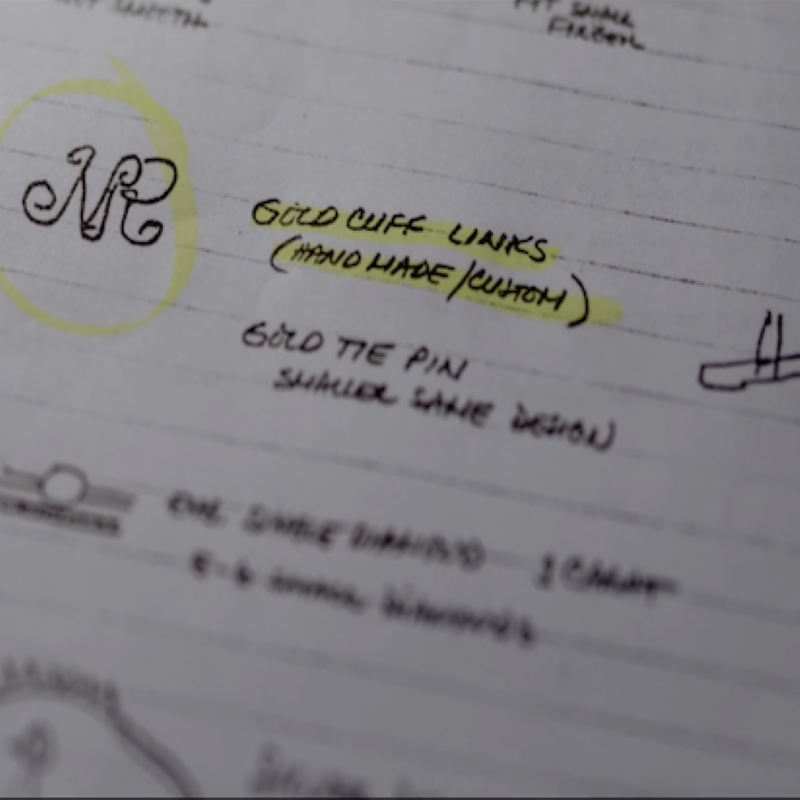 SMOOTH
FIT SMALL
FINGER
NR
GOLD CUFF LINKS
(HAND MADE/CUSTOM)
GOLD TIE PIN
SMALLER SAME DESIGN
ONE SINGLE DIAMOND 1 CARAT
SMALL DIAMONDS